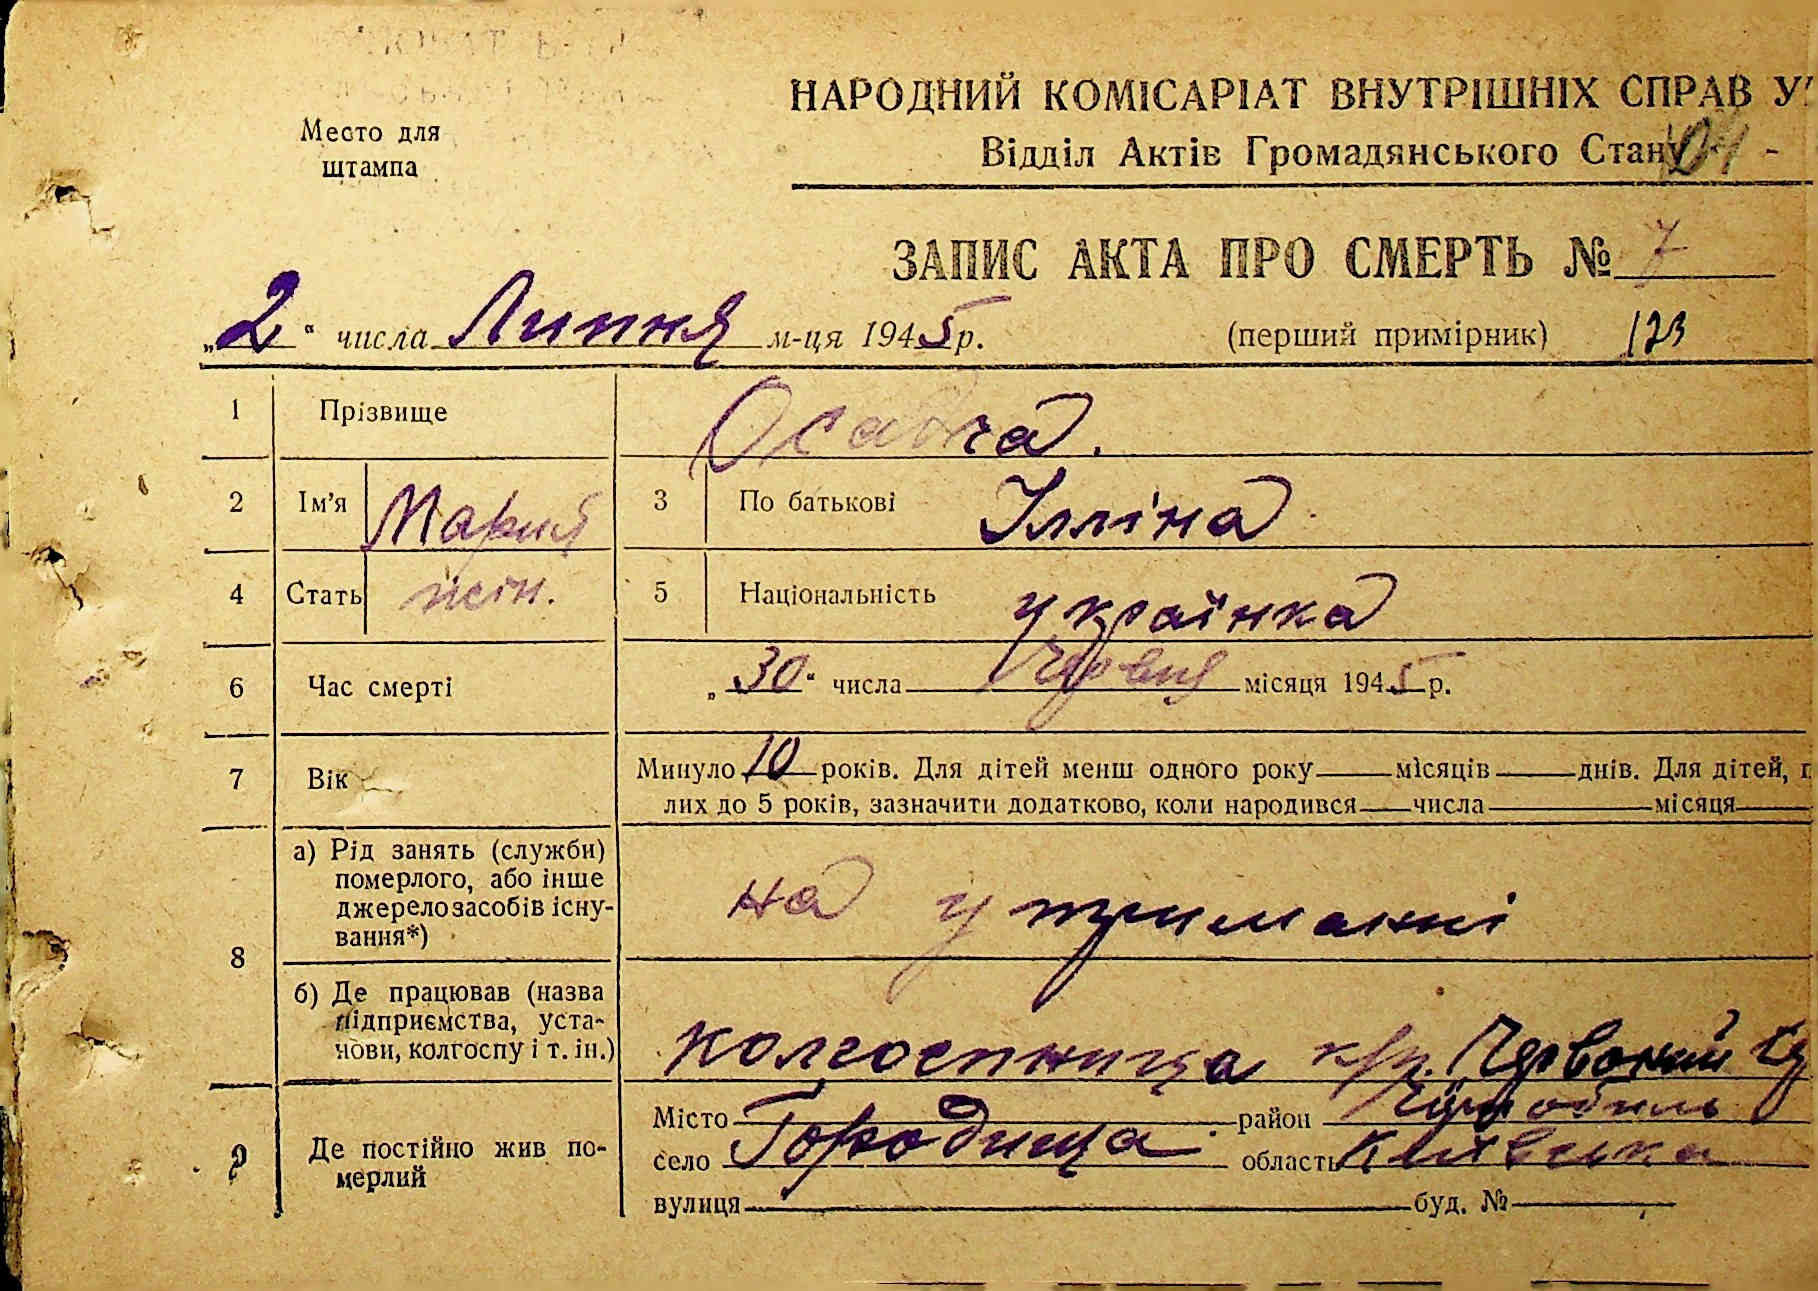 НАРОДНИЙ КОМІСАРІАТ ВНУТРІШНІХ СПРАВ У
Место для
штампа
Відділ Актів Громадянського Стану
ЗАПИС АКТА ПРО СМЕРТЬ № 7
„2“ числа Липня м-ця 1945 р. (перший примірник) 123
1 Прізвище Осадча.
2 Ім'я Мария 3 По батькові Ілліна
4 Стать жін. 5 Національність українка
6 Час смерті „30“ числа Червня місяця 1945 р.
7 Вік Минуло 10 років. Для дітей менш одного року місяців днів. Для дітей,
лих до 5 років, зазначити додатково, коли народився числа місяця
8 а) Рід занять (служби) померлого, або інше джерело засобів існу-
вання*) на утриманні
б) Де працював (назва підприємства, уста-
нови, колгоспу і т. ін.) колгоспниця к/г. Червоний
9 Де постійно жив по-
мерлий
Місто район Чорнобиль
село Городища область Київська
вулиця буд. №